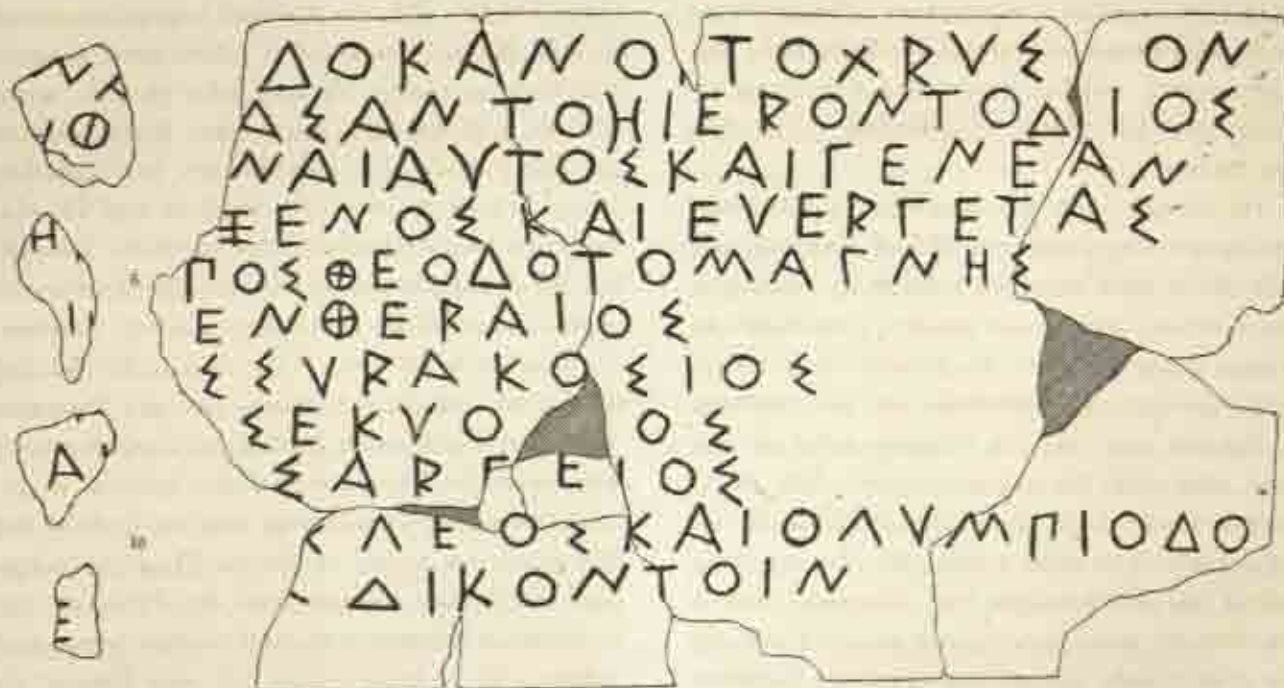 ΔΟΚΑΝΟΙΤΟΧRVΣ ΟΝ
ΑΣΑΝΤΟΗΙΕRΟΝΤΟΔΙΟΣ
ΝΑΙΑVΤΟΣΚΑΙΓΕΝΕΑΝ
ΞΕΝΟΣΚΑΙΕVΕRΓΕΤΑΣ
ΠΟΣΘΕΟΔΟΤΟΜΑΓΝΗΣ
ΕΝΘΕRΑΙΟΣ
ΣΣVRΑΚΟΣΙΟΣ
ΣΕΚVΟ ΟΣ
ΣΑRΓΕΙΟΣ
ΚΛΕΟΣΚΑΙΟΛVΜΠΙΟΔΟ
ΔΙΚΟΝΤΟΙΝ
Η
Α